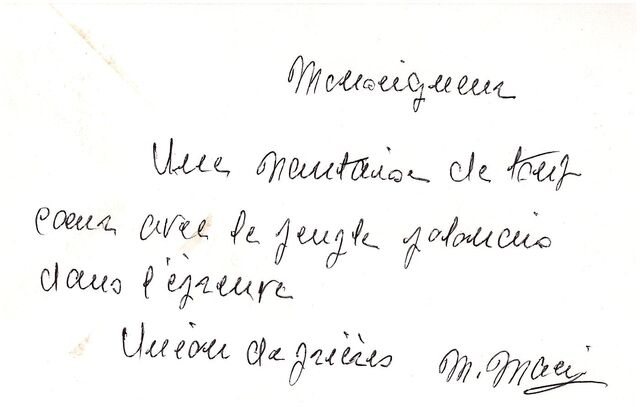 Monseigneur
Une nantaise de tout
coeur avec le peuple polonais
dans l'épreuve
Union de prières M. Marie